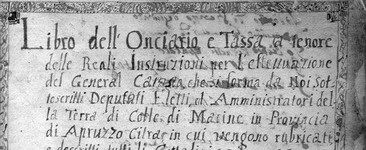 Libro dell'Onciario e Tassa a tenore
delle Reali Instruzioni per l'
del General Catasto che si forma da Noi Sot-
toscritti Deputati Eletti, et Amministratori del
la Terra di Colle di Macine in Provincia
di Apruzzo Citra, in cui vengono rubricati
e descritti tutti li